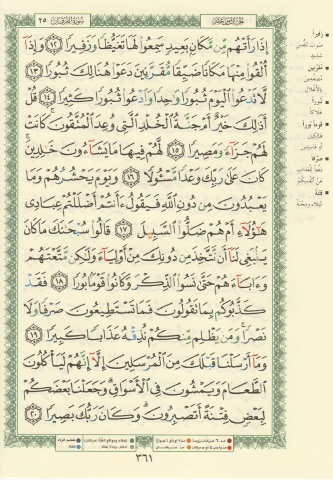 سورة الفرقان ٢٥
الجزء الثامن عشر
إِذَا رَأَتْهُم مِّن مَّكَانٍ بَعِيدٍ سَمِعُوا۟ لَهَا تَغَيُّظًا وَزَفِيرًا ١٢ وَإِذَآ
أُلْقُوا۟ مِنْهَا مَكَانًا ضَيِّقًا مُّقَرَّنِينَ دَعَوْا۟ هُنَالِكَ ثُبُورًا ١٣
لَّا تَدْعُوا۟ ٱلْيَوْمَ ثُبُورًا وَٰحِدًا وَٱدْعُوا۟ ثُبُورًا كَثِيرًا ١٤ قُلْ
أَذَٰلِكَ خَيْرٌ أَمْ جَنَّةُ ٱلْخُلْدِ ٱلَّتِى وُعِدَ ٱلْمُتَّقُونَ كَانَتْ
لَهُمْ جَزَآءً وَمَصِيرًا ١٥ لَّهُمْ فِيهَا مَا يَشَآءُونَ خَٰلِدِينَ
كَانَ عَلَىٰ رَبِّكَ وَعْدًا مَّسْـُٔولًا ١٦ وَيَوْمَ يَحْشُرُهُمْ وَمَا
يَعْبُدُونَ مِن دُونِ ٱللَّهِ فَيَقُولُ ءَأَنتُمْ أَضْلَلْتُمْ عِبَادِى
هَٰٓؤُلَآءِ أَمْ هُمْ ضَلُّوا۟ ٱلسَّبِيلَ ١٧ قَالُوا۟ سُبْحَٰنَكَ مَا كَانَ
يَنۢبَغِى لَنَآ أَن نَّتَّخِذَ مِن دُونِكَ مِنْ أَوْلِيَآءَ وَلَٰكِن مَّتَّعْتَهُمْ
وَءَابَآءَهُمْ حَتَّىٰ نَسُوا۟ ٱلذِّكْرَ وَكَانُوا۟ قَوْمًۢا بُورًا ١٨ فَقَدْ
كَذَّبُوكُم بِمَا تَقُولُونَ فَمَا تَسْتَطِيعُونَ صَرْفًا وَلَا
نَصْرًا وَمَن يَظْلِم مِّنكُمْ نُذِقْهُ عَذَابًا كَبِيرًا ١٩
وَمَآ أَرْسَلْنَا قَبْلَكَ مِنَ ٱلْمُرْسَلِينَ إِلَّآ إِنَّهُمْ لَيَأْكُلُونَ
ٱلطَّعَامَ وَيَمْشُونَ فِى ٱلْأَسْوَاقِ وَجَعَلْنَا بَعْضَكُمْ
لِبَعْضٍ فِتْنَةً أَتَصْبِرُونَ وَكَانَ رَبُّكَ بَصِيرًا ٢٠
زفيراً
صوت تنفّس
شديد
مقرّنين
بالأغلال
ثبوراً
هلاكاً
قوماً بوراً
هالكين
صرفاً
فتنة
ابتلاء ومحنة
٣٦١